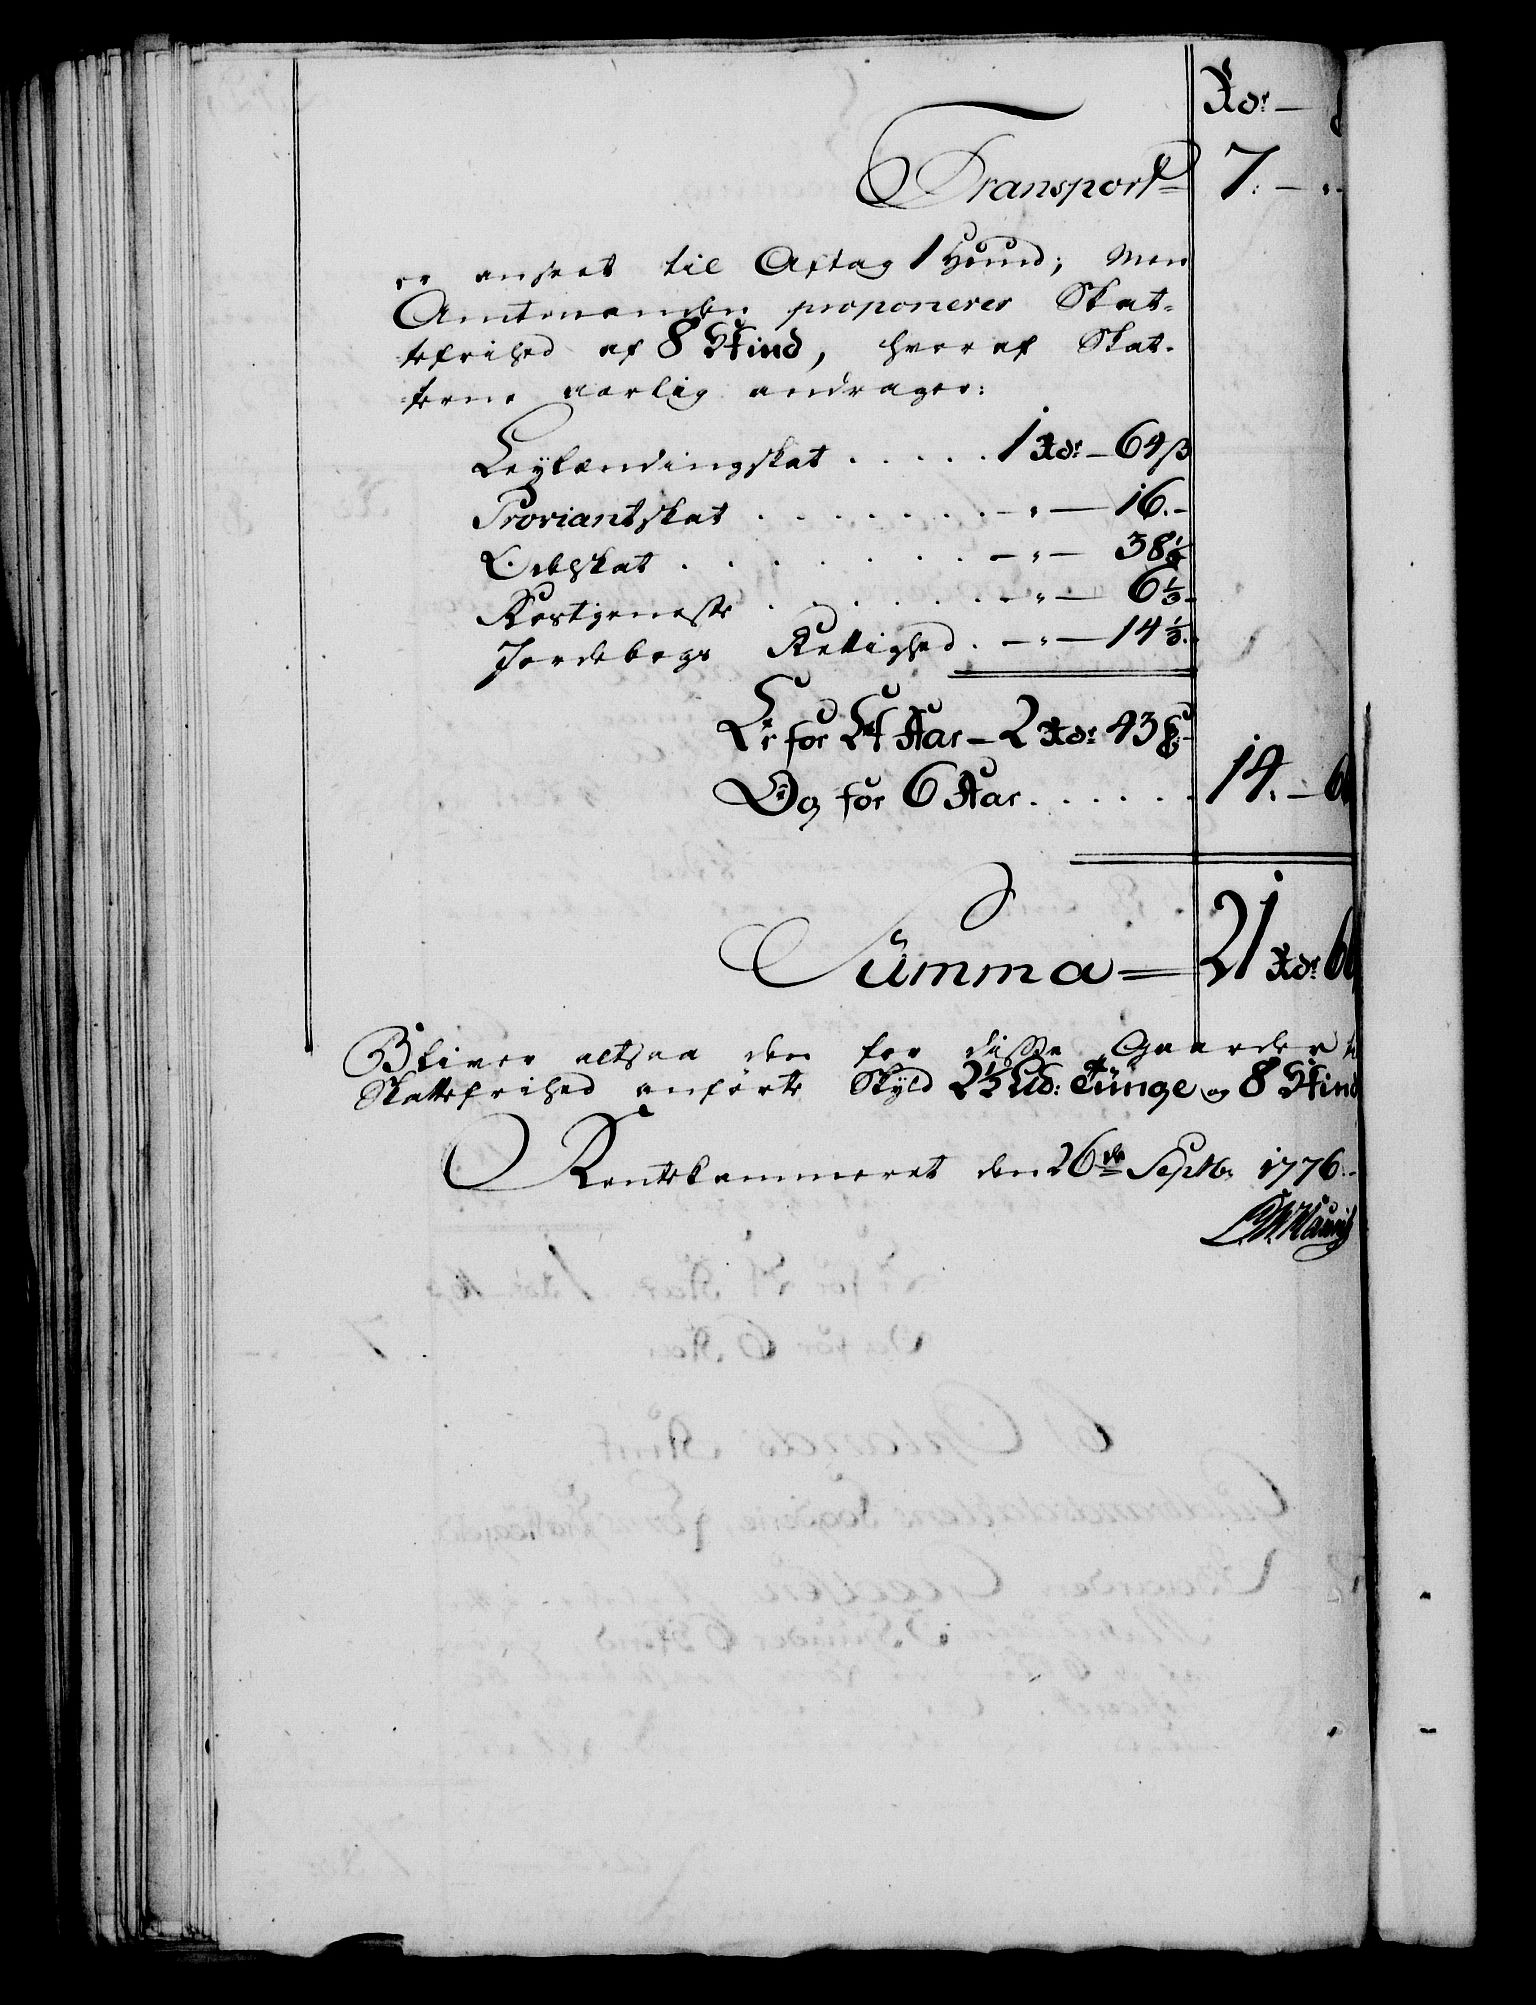 Rdr –
Transport 7. –
er ansat til Aftag 1 Hund; men
Amtmanden proponerer Skat-
tefrihed af 8 Skind, hvoraf Skat-
terne aarlig andrager:
Leylændingskat . . . . . 1 Rdr – 64 ß
Proviantskat . . . . . . . – " – 16. –
Odelskat . . . . . . . – " – 38
Rostjeneste . . . . . . – " – 6 1/3
Jordebogs Rettighed . – " – 14 1/3
Er for Et Aar – 2 Rdr 43
Og for 6 Aar . . . . . . 14. –
Summa = 21 Rdr
Bliver altsaa den for disse Gaarder
Skattefrihed anførte Skyld 2 1/2 Tunge og 8 Skind
Rentekammeret den 26de Septbr 1776.